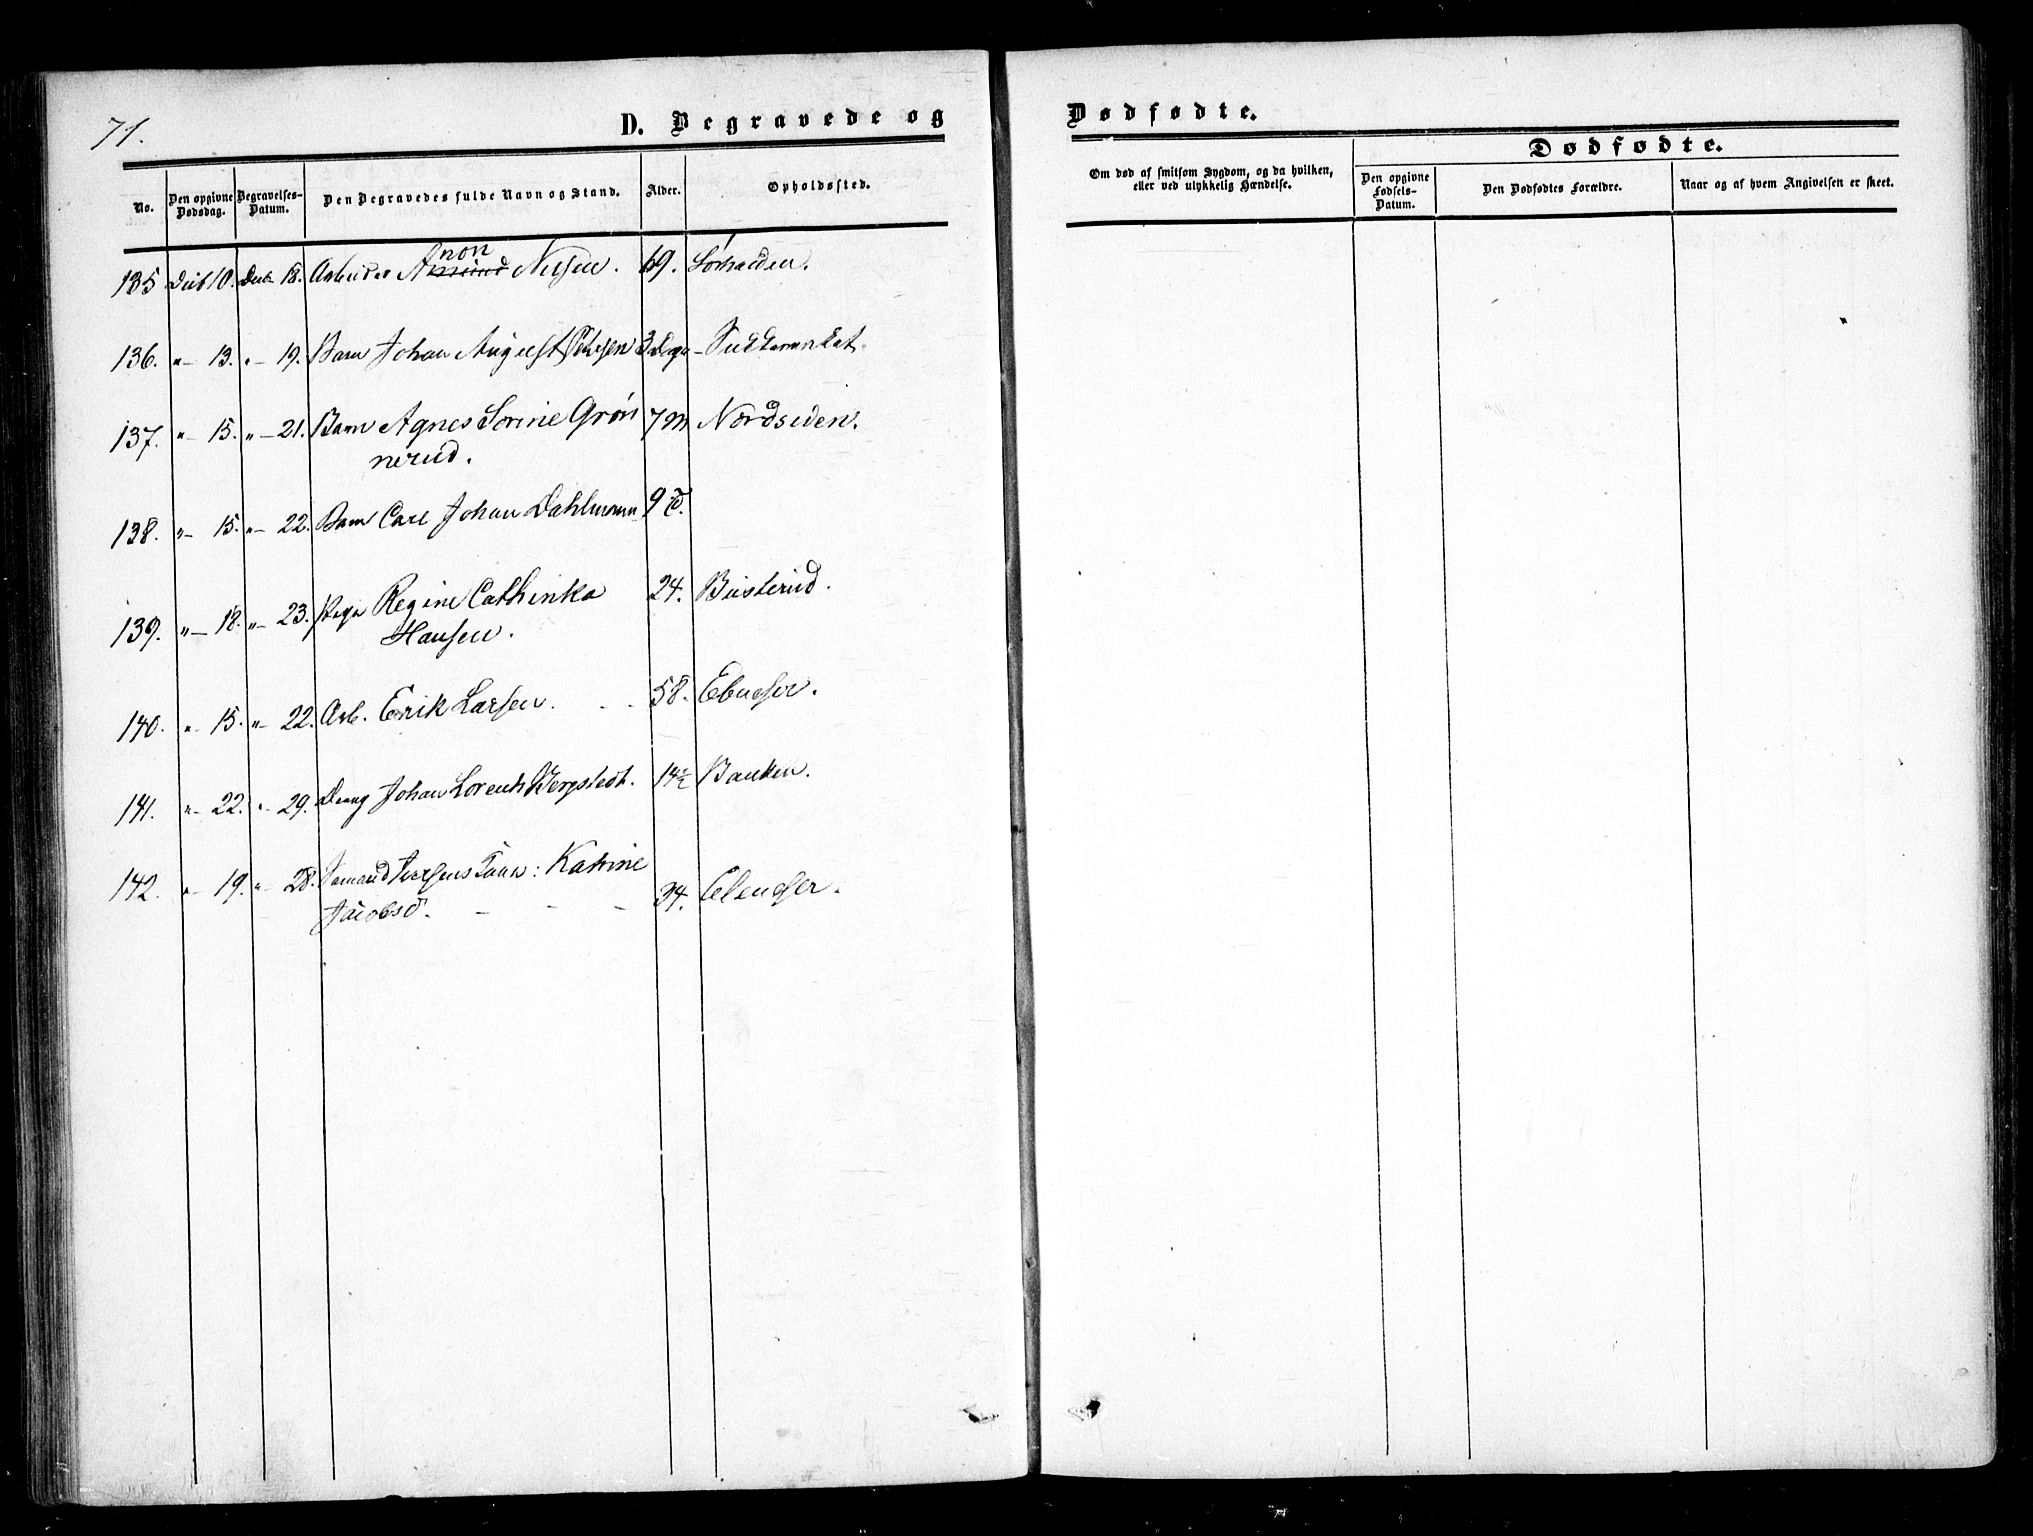 71.
D. Begravede og
Dødfødte.
No.
Den opgivne Dødsdag.
Begravelses-Datum.
Den Begravedes fulde Navn og Stand.
Alder.
Opholdssted.
Om død af smitsom Sygdom, og da hvilken, eller ved ulykkelig Hændelse.
Dødfødte.
Den opgivne Fødsels-Datum.
Den Dødfødtes Forældre.
Naar og af hvem Angivelsen er skeet.
non
135 10. 18. Arbeider Amund Nilsen. 69.
136. "- 13. "- 19. Barn Johan August 3 Dage
137. "- 15. "- 21. Barn Agnes Sorine Grøn 7 M Nordsiden.
nerud.
138. "- 15. "- 22. Barn Carl Johan Dahlmann 9
139. "- 18. "- 23. Pige Regine Cathinka 24. Busterud.
Hansen.
140. "- 15. "- 22. Arb. Erik Larsen. 58. Ebneser.
141. "- 22. "- 29. Dreng Johan Lorents Bergstedt. 14½ Banken.
142. "- 19. "- 28. Katrine
Jacobsd. - - - 34.